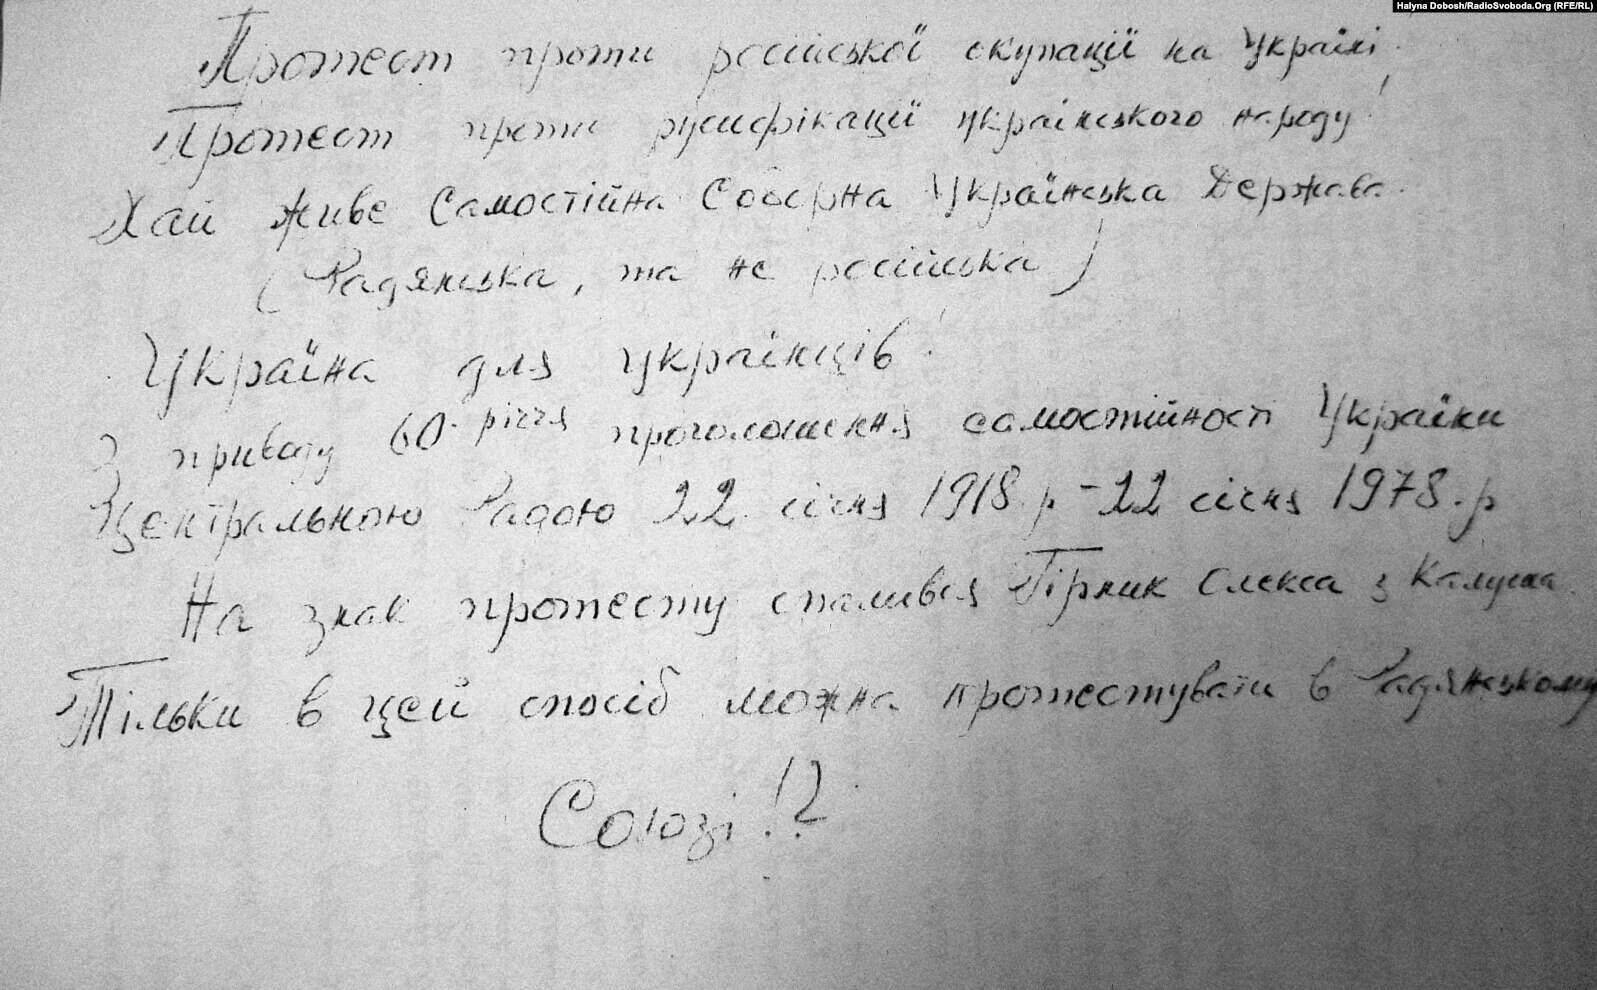 Halyna Dobosh/RadioSvoboda.Org (RFE/RL)
Протест проти російської окупації на Україні!
Протест проти русифікації українського народу!
Хай живе Самостійна Соборна Українська Держава.
(Радянська, та не російська)
Україна для українців!
З приводу 60-річчя проголошення самостійності України
Центральною Радою 22 січня 1918 р – 22 січня 1978.р
На знак протесту спалився Гірник Олекса з Калуша.
Тільки в цей спосіб можна протестувати в Радянському
Союзі!?